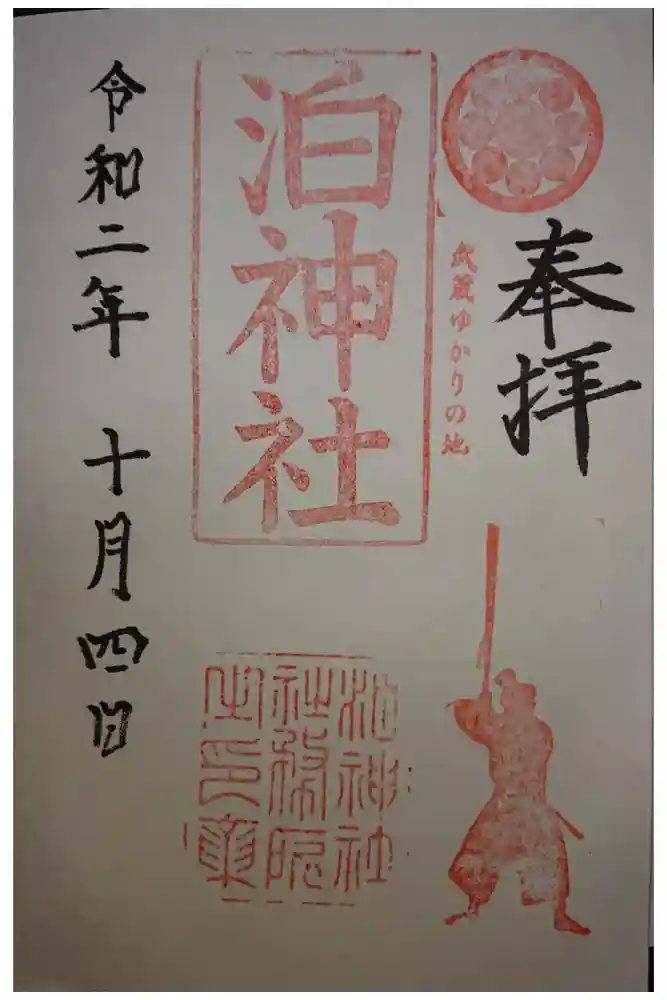 奉拝
武蔵ゆかりの地
泊神社
泊神社
社務所
之印章
令和二年 十月四日